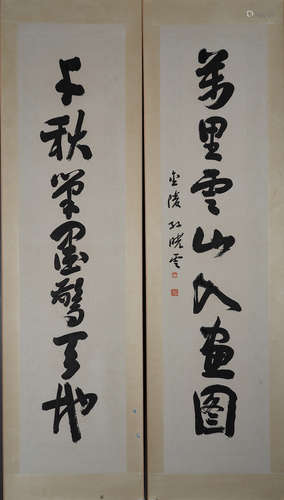 萬里雲山入畫圖
千秋筆墨驚天地
金陵孫曉雲